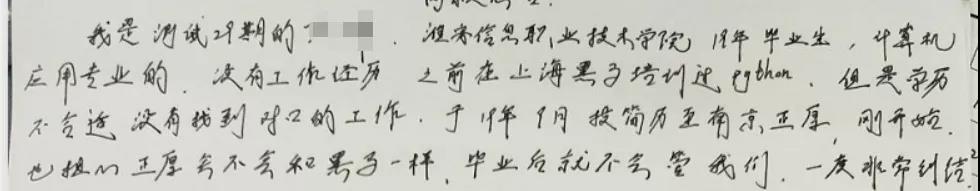 我是测试29期的丁 . 淮安信息职业技术学院 19年毕业生, 计算机
应用专业的. 没有工作经历 之前在上海黑马培训过python. 但是学历
不合适 没有找到对口的工作. 于19年9月投简历至南京正厚, 刚开始.
也担心正厚会不会和黑马一样, 毕业后就不会管我们. 一度非常纠结